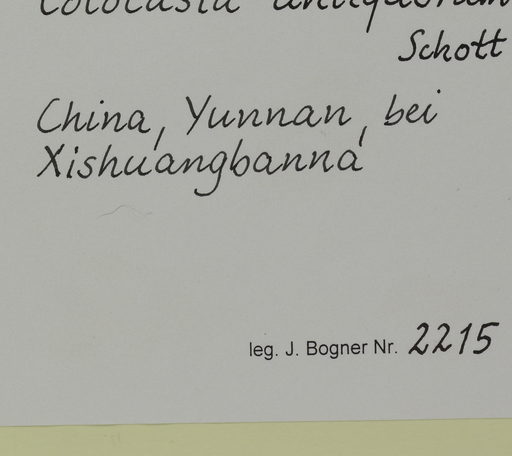 Colocasia antiquorum
Schott
China, Yunnan, bei
Xishuangbanna
leg. J. Bogner Nr. 2215